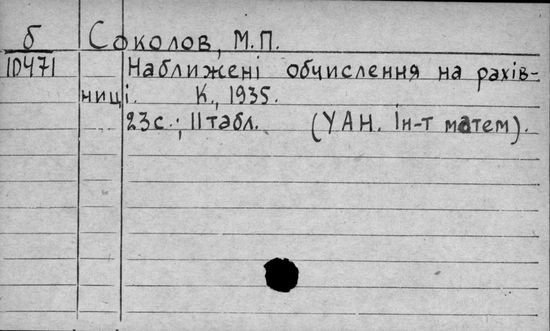 б
10471
Соколов, М.П.
Наближені обчислення на рахів-
ниці. К., 1935.
23с.; 11табл. (УАН. Ін-т матем).